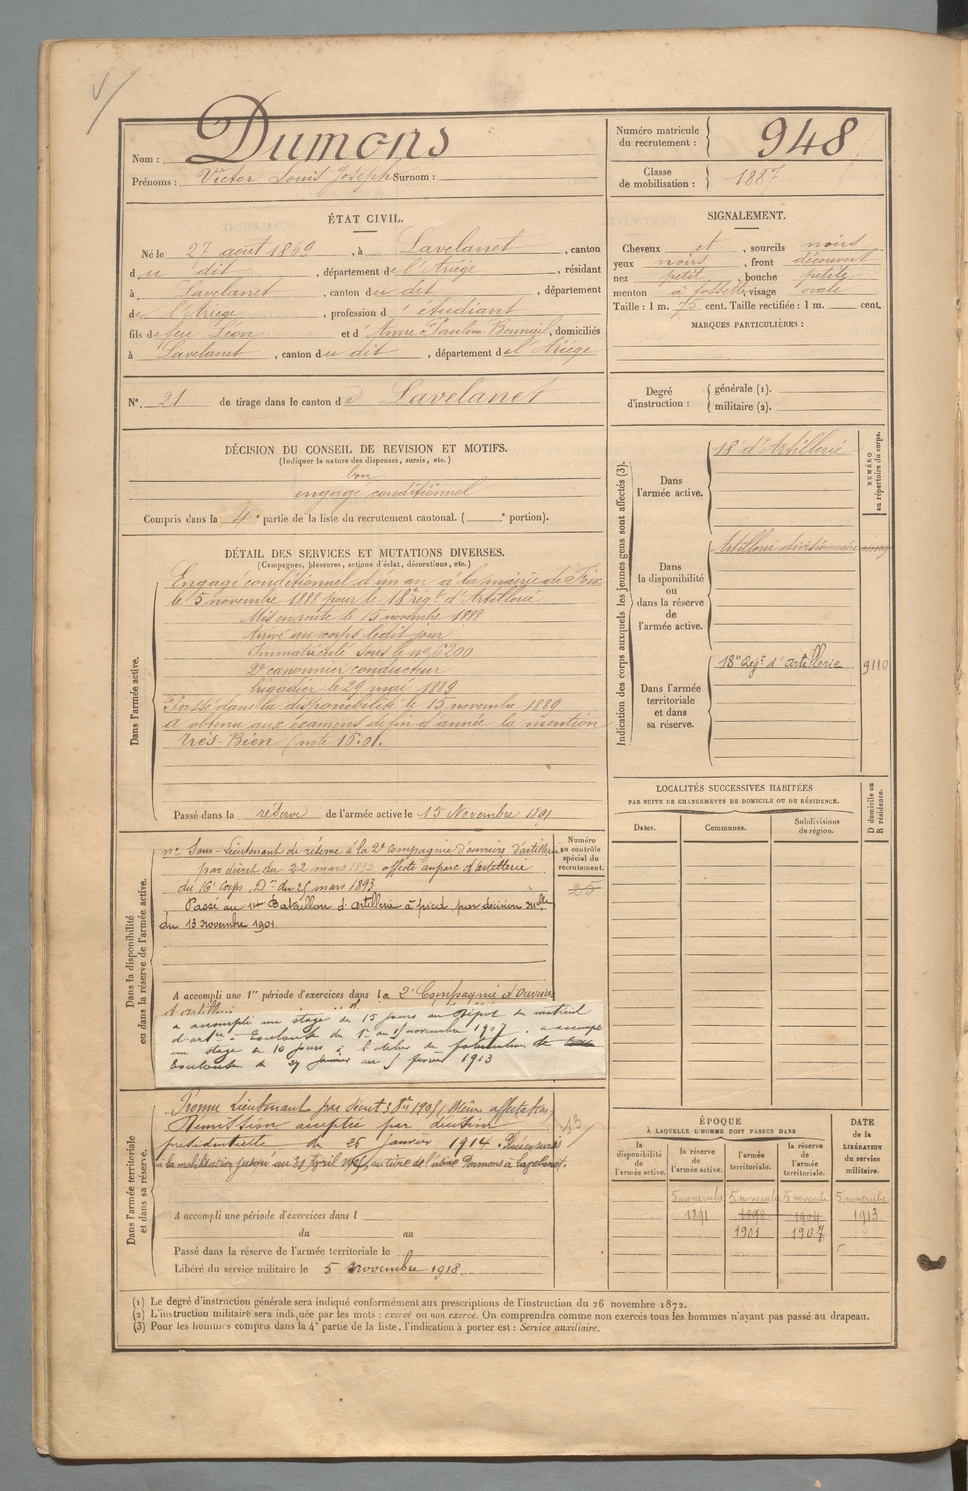 Nom : Dumons
Prénoms : Victor Louis Joseph Surnom :
Numéro matricule du recrutement : 948
Classe de mobilisation : 1887
ÉTAT CIVIL.
Né le 27 août 1869, à Lavelanet, canton
du dit, département de l'Ariège, résidant
à Lavelanet, canton du dit, département
de l'Ariège, profession d'étudiant
fils de feu Léon et d'Anne Pauline Bonnail, domiciliés
à Lavelanet, canton du dit, département de l'Ariège
N° 21 de tirage dans le canton de Lavelanet
SIGNALEMENT.
Cheveux et, sourcils noirs
yeux noirs, front découvert
nez petit, bouche petite
menton à fossette, visage ovale
Taille : 1 m. 75 cent. Taille rectifiée : 1 m. cent.
MARQUES PARTICULIÈRES :
Degré d'instruction : générale (1).
militaire (2).
DÉCISION DU CONSEIL DE REVISION ET MOTIFS.
(Indiquer la nature des dispenses, sursis, etc.)
bon
engagé conditionnel
Compris dans la 4e partie de la liste du recrutement cantonal. ( e portion).
DÉTAIL DES SERVICES ET MUTATIONS DIVERSES.
(Campagnes, blessures, actions d'éclat, décorations, etc.)
Dans l'armée active.
Engagé conditionnel d'un an à la mairie de Foix
le 5 novembre 1888 pour le 18e régt d'Artillerie
Mis en route le 15 novembre 1888
Arrivé au corps ledit jour
Immatriculé sous le n° 6200
2e canonnier conducteur
brigadier le 29 mai 1889
Passé dans la disponibilité le 15 novembre 1889
A obtenu aux examens de fin d'année la mention
très-Bien (note 16.01.
Passé dans la réserve de l'armée active le 15 Novembre 1891
Dans la disponibilité ou dans la réserve de l'armée active.
né Sous-Lieutenant de réserve à la 2e Compagnie d'ouvriers d'artillerie
par décret du 22 mars 1892 affecté au parc d'artillerie
du 16e Corps. Don du 25 mars 1893
Passé au 1er Bataillon d'artillerie à pied, par décision Mlle
du 13 novembre 1901.
Numéro au contrôle spécial du recrutement.
25
A accompli une 1re période d'exercices dans la 2e Compagnie d'ouvriers
d'artillerie
a accompli un stage de 15 jours au Dépôt de matériel
d'artie à Toulouse du 1er au 15 novembre 1907. a accompli
un stage de 10 jours à l'atelier de fabrication de
Toulouse du 27 janvier au 5 février 1913
Dans l'armée territoriale et dans sa réserve.
Promu Lieutenant par décret 1905 (Même affectation)
Démission acceptée par décision
présidentielle du 26 janvier 1914.
à la mobilisation jusqu'au 30 Avril au titre de l'usine Dumons à Lavelanet.
13
A accompli une période d'exercices dans l
du au
Passé dans la réserve de l'armée territoriale le
Libéré du service militaire le 5 novembre 1918.
Indication des corps auxquels les jeunes gens sont affectés (3).
NUMÉRO au répertoire du corps.
Dans l'armée active.
18e d'Artillerie
Dans la disponibilité ou dans la réserve de l'armée active.
Artillerie divisionnaire
Dans l'armée territoriale et dans sa réserve.
18e Régt d'artillerie 9110
LOCALITÉS SUCCESSIVES HABITÉES
PAR SUITE DE CHANGEMENTS DE DOMICILE OU DE RÉSIDENCE.
Dates. Communes. Subdivisions de région. D domicile ou R résidence.
ÉPOQUE
À LAQUELLE L'HOMME DOIT PASSER DANS
DATE de la LIBÉRATION du service militaire.
la disponibilité de l'armée active. la réserve de l'armée active. l'armée territoriale. la réserve de l'armée territoriale.
5 novembre 5 novembre 5 novembre 5 novembre
1891 1898 1904 1913
1901 1907
(1) Le degré d'instruction générale sera indiqué conformément aux prescriptions de l'instruction du 26 novembre 1872.
(2) L'instruction militaire sera indiquée par les mots : exercé ou non exercé. On comprendra comme non exercés tous les hommes n'ayant pas passé au drapeau.
(3) Pour les hommes compris dans la 4e partie de la liste, l'indication à porter est : Service auxiliaire.